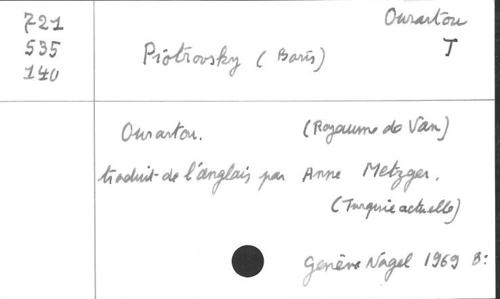 721
535
140
Ourartou
T
Piotrovsky (Boris)
Ourartou. (Royaume de Van)
traduit de l'anglais par Anne Metzger.
(Turquie actuelle)
Genève Nagel 1969 B: